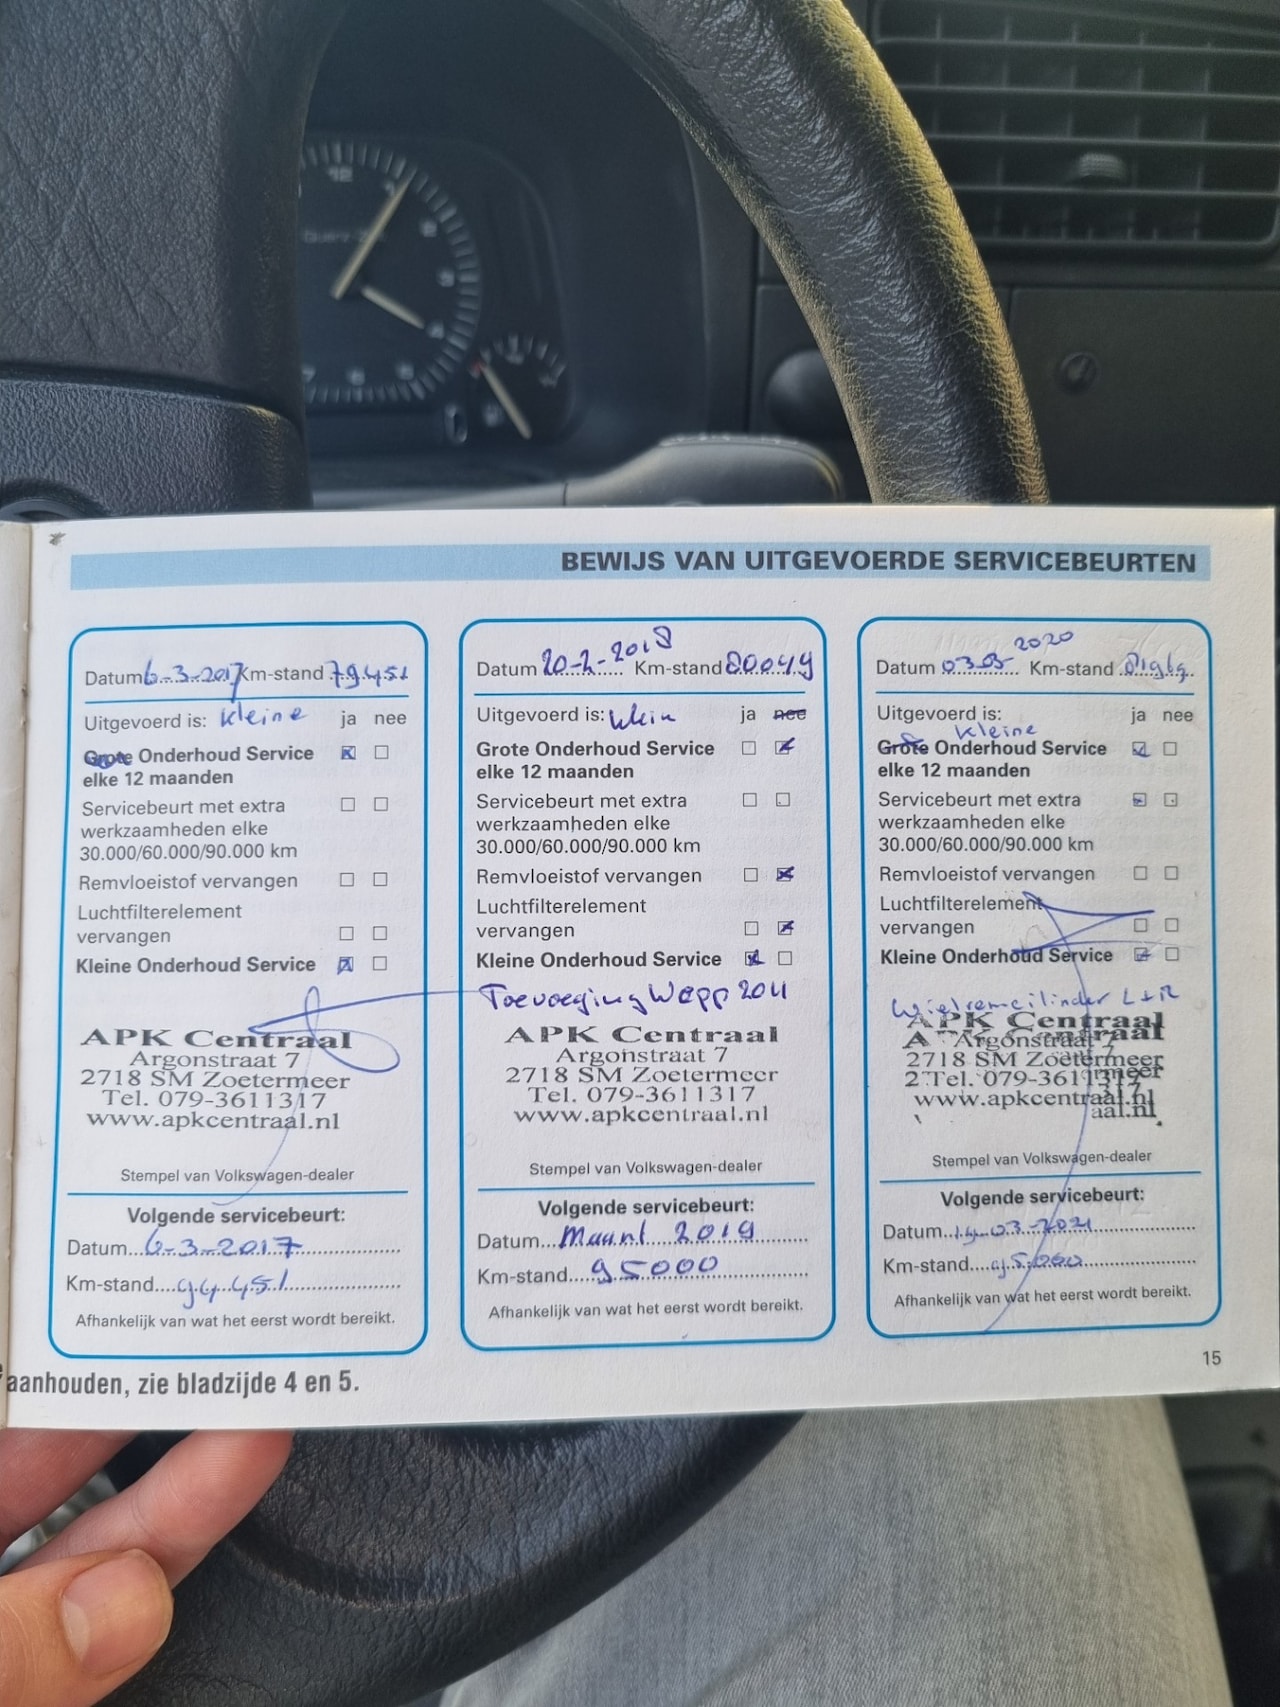 BEWIJS VAN UITGEVOERDE SERVICEBEURTEN
Datum 6-3-2017 Km-stand 79.451
Uitgevoerd is: kleine ja nee
Grote Onderhoud Service
elke 12 maanden
Servicebeurt met extra
werkzaamheden elke
30.000/60.000/90.000 km
Remvloeistof vervangen
Luchtfilterelement
vervangen
Kleine Onderhoud Service
APK Centraal
Argonstraat 7
2718 SM Zoetermeer
Tel. 079-3611317
www.apkcentraal.nl
Stempel van Volkswagen-dealer
Volgende servicebeurt:
Datum 6-3-2017
Km-stand 94.451
Afhankelijk van wat het eerst wordt bereikt.
Datum 20-2-2018 Km-stand 80049
Uitgevoerd is: klein ja nee
Grote Onderhoud Service
elke 12 maanden
Servicebeurt met extra
werkzaamheden elke
30.000/60.000/90.000 km
Remvloeistof vervangen
Luchtfilterelement
vervangen
Kleine Onderhoud Service
Toevoeging
APK Centraal
Argonstraat 7
2718 SM Zoetermeer
Tel. 079-3611317
www.apkcentraal.nl
Stempel van Volkswagen-dealer
Volgende servicebeurt:
Datum Maart 2019
Km-stand 95000
Afhankelijk van wat het eerst wordt bereikt.
2020
Datum 03.03 Km-stand
Uitgevoerd is: ja nee
kleine
Grote Onderhoud Service
elke 12 maanden
Servicebeurt met extra
werkzaamheden elke
30.000/60.000/90.000 km
Remvloeistof vervangen
Luchtfilterelement
vervangen
Kleine Onderhoud Service
Wielremcilinder L+R
APK Centraal
Argonstraat 7
2718 SM Zoetermeer
Tel. 079-3611317
www.apkcentraal.nl
Stempel van Volkswagen-dealer
Volgende servicebeurt:
Datum 03-2021
Km-stand 95.000
Afhankelijk van wat het eerst wordt bereikt.
15
aanhouden, zie bladzijde 4 en 5.